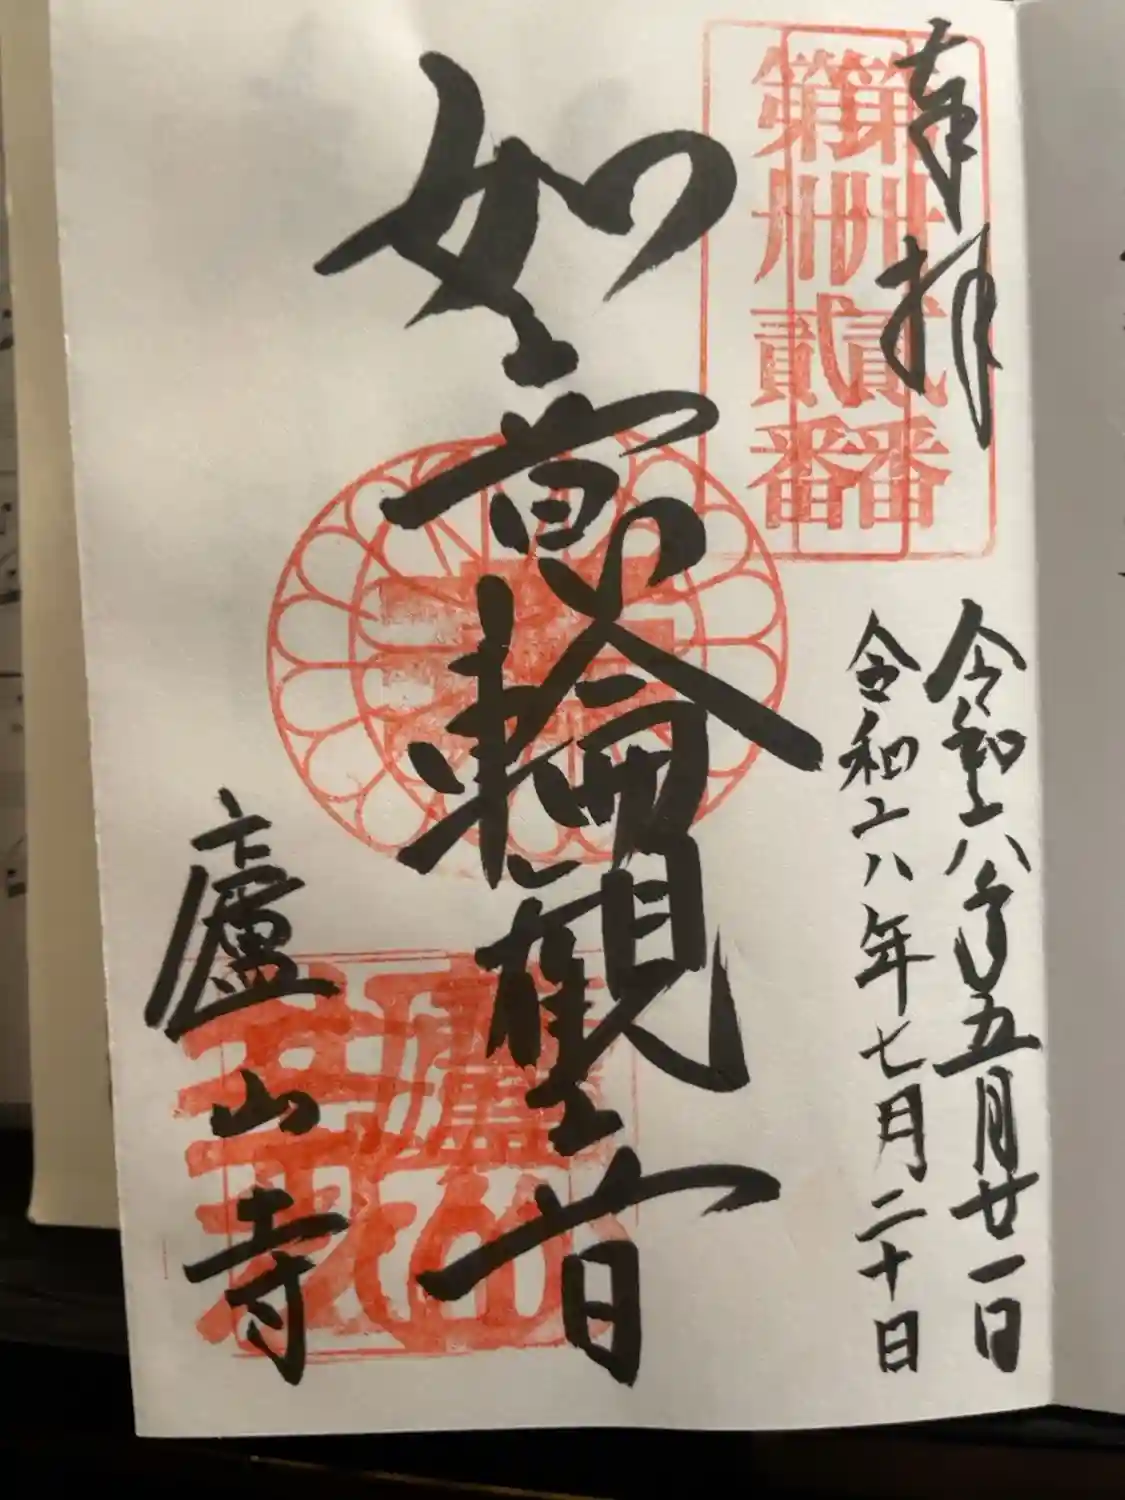 奉拝
第卅貳番
第卅貳番
令和八年五月廿一日
令和八年七月二十日
如意輪觀音
廬山寺